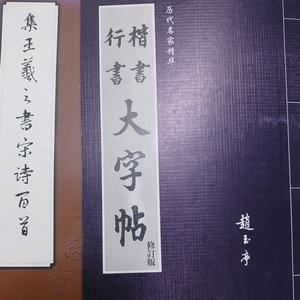 集王羲之書宋诗百首
历代名家精华
楷書
行書
大字帖
修訂版
趙玉亭